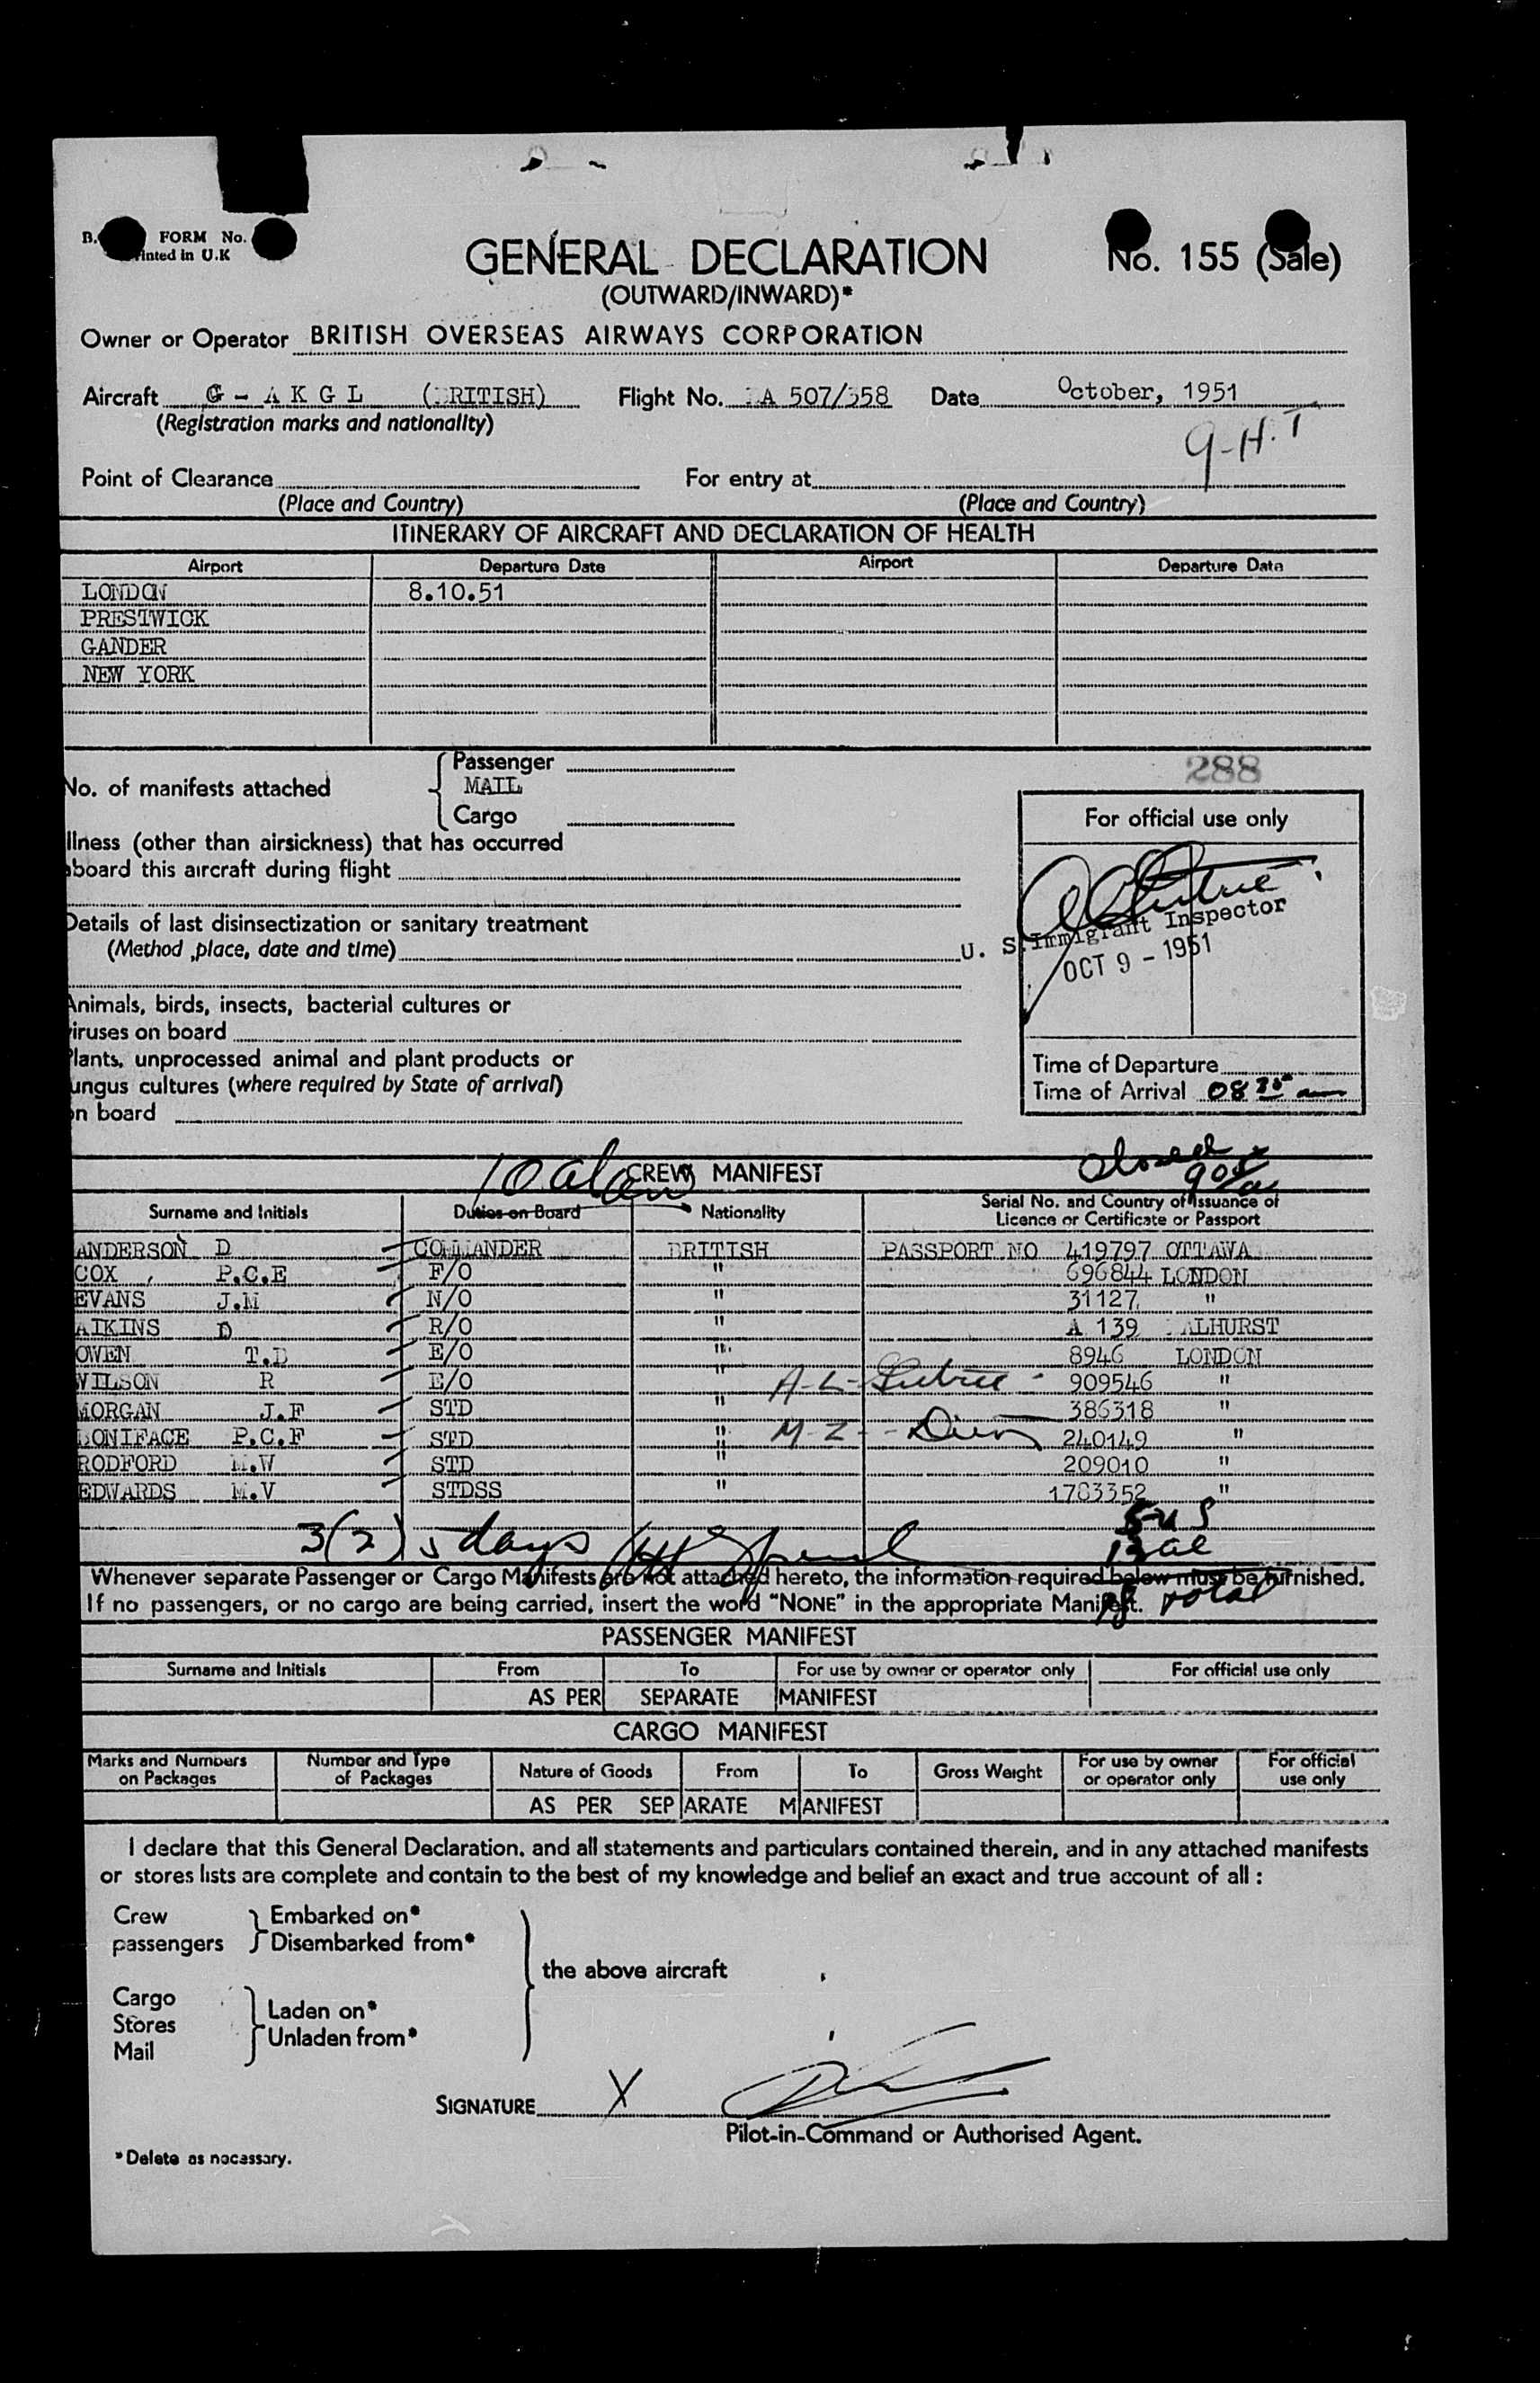 FORM No.
Printed in U.K
GENERAL DECLARATION
No. 155 (Sale)
(OUTWARD/INWARD)*
Owner or Operator BRITISH OVERSEAS AIRWAYS CORPORATION
Aircraft G - A K G L (BRITISH) Flight No. BA 507/358 Date October, 1951
(Registration marks and nationality)
9-H.T
Point of Clearance For entry at
(Place and Country) (Place and Country)
ITINERARY OF AIRCRAFT AND DECLARATION OF HEALTH
Airport Departure Date Airport Departure Date
LONDON 8.10.51
PRESTWICK
GANDER
NEW YORK
288
Passenger
No. of manifests attached MAIL
Cargo
For official use only
llness (other than airsickness) that has occurred
aboard this aircraft during flight
Details of last disinsectization or sanitary treatment
(Method ,place, date and time)
U. S. Immigrant Inspector
OCT 9 - 1951
Animals, birds, insects, bacterial cultures or
viruses on board
Plants, unprocessed animal and plant products or
ungus cultures (where required by State of arrival)
on board
Time of Departure
Time of Arrival 08 35 am
10 alien CREW MANIFEST Closed
905 a
Surname and Initials Duties on Board Nationality Serial No. and Country of Issuance of
Licence or Certificate or Passport
ANDERSON D COMMANDER BRITISH PASSPORT NO 419797 OTTAWA
COX , P.C.E F/O " 696844 LONDON
EVANS J.M N/O " 31127 "
AIKINS D R/O " A 139 ALHURST
OWEN T.D E/O " 8946 LONDON
WILSON R E/O " 909546 "
MORGAN J.F STD " 386318 "
BONIFACE P.C.F STD " 240149 "
RODFORD M.W STD " 209010 "
EDWARDS M.V STDSS " 1783352 "
3(2) 5 days
5 u S
13 al
18 total
Whenever separate Passenger or Cargo Manifests are not attached hereto, the information required below must be furnished.
If no passengers, or no cargo are being carried, insert the word "NONE" in the appropriate Manifest.
PASSENGER MANIFEST
Surname and Initials From To For use by owner or operator only For official use only
AS PER SEPARATE MANIFEST
CARGO MANIFEST
Marks and Numbers on Packages Number and Type of Packages Nature of Goods From To Gross Weight For use by owner or operator only For official use only
AS PER SEPARATE MANIFEST
I declare that this General Declaration, and all statements and particulars contained therein, and in any attached manifests
or stores lists are complete and contain to the best of my knowledge and belief an exact and true account of all :
Crew Embarked on*
passengers Disembarked from*
the above aircraft
Cargo
Stores Laden on*
Mail Unladen from*
SIGNATURE X
Pilot-in-Command or Authorised Agent.
*Delete as necessary.